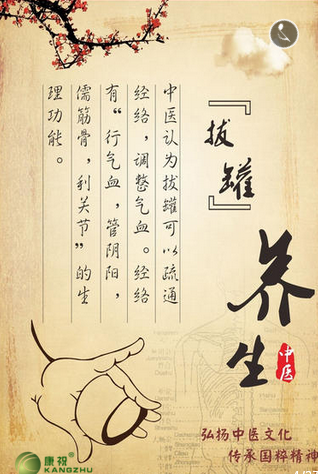 『拔罐』
养生
中医
中医认为拔罐可以疏通
经络，调整气血。经络
有“行气血，管阴阳，
儒筋骨，利关节”的生
理功能。
弘扬中医文化
传承国粹精神
康祝
KANGZHU